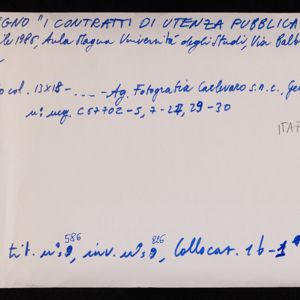 EGNO "I CONTRATTI DI UTENZA PUBBLICA
1985, Aula Magna Università degli Studi, Via Balb
col. 13x18 - . . . . - Ag. Fotografia Carlevaro s.n.c., Ge
n° neg. C67702-5, 7-27, 29-30
586 826
tit. n° 9, inv. n° 9, Collocaz. 1b-1